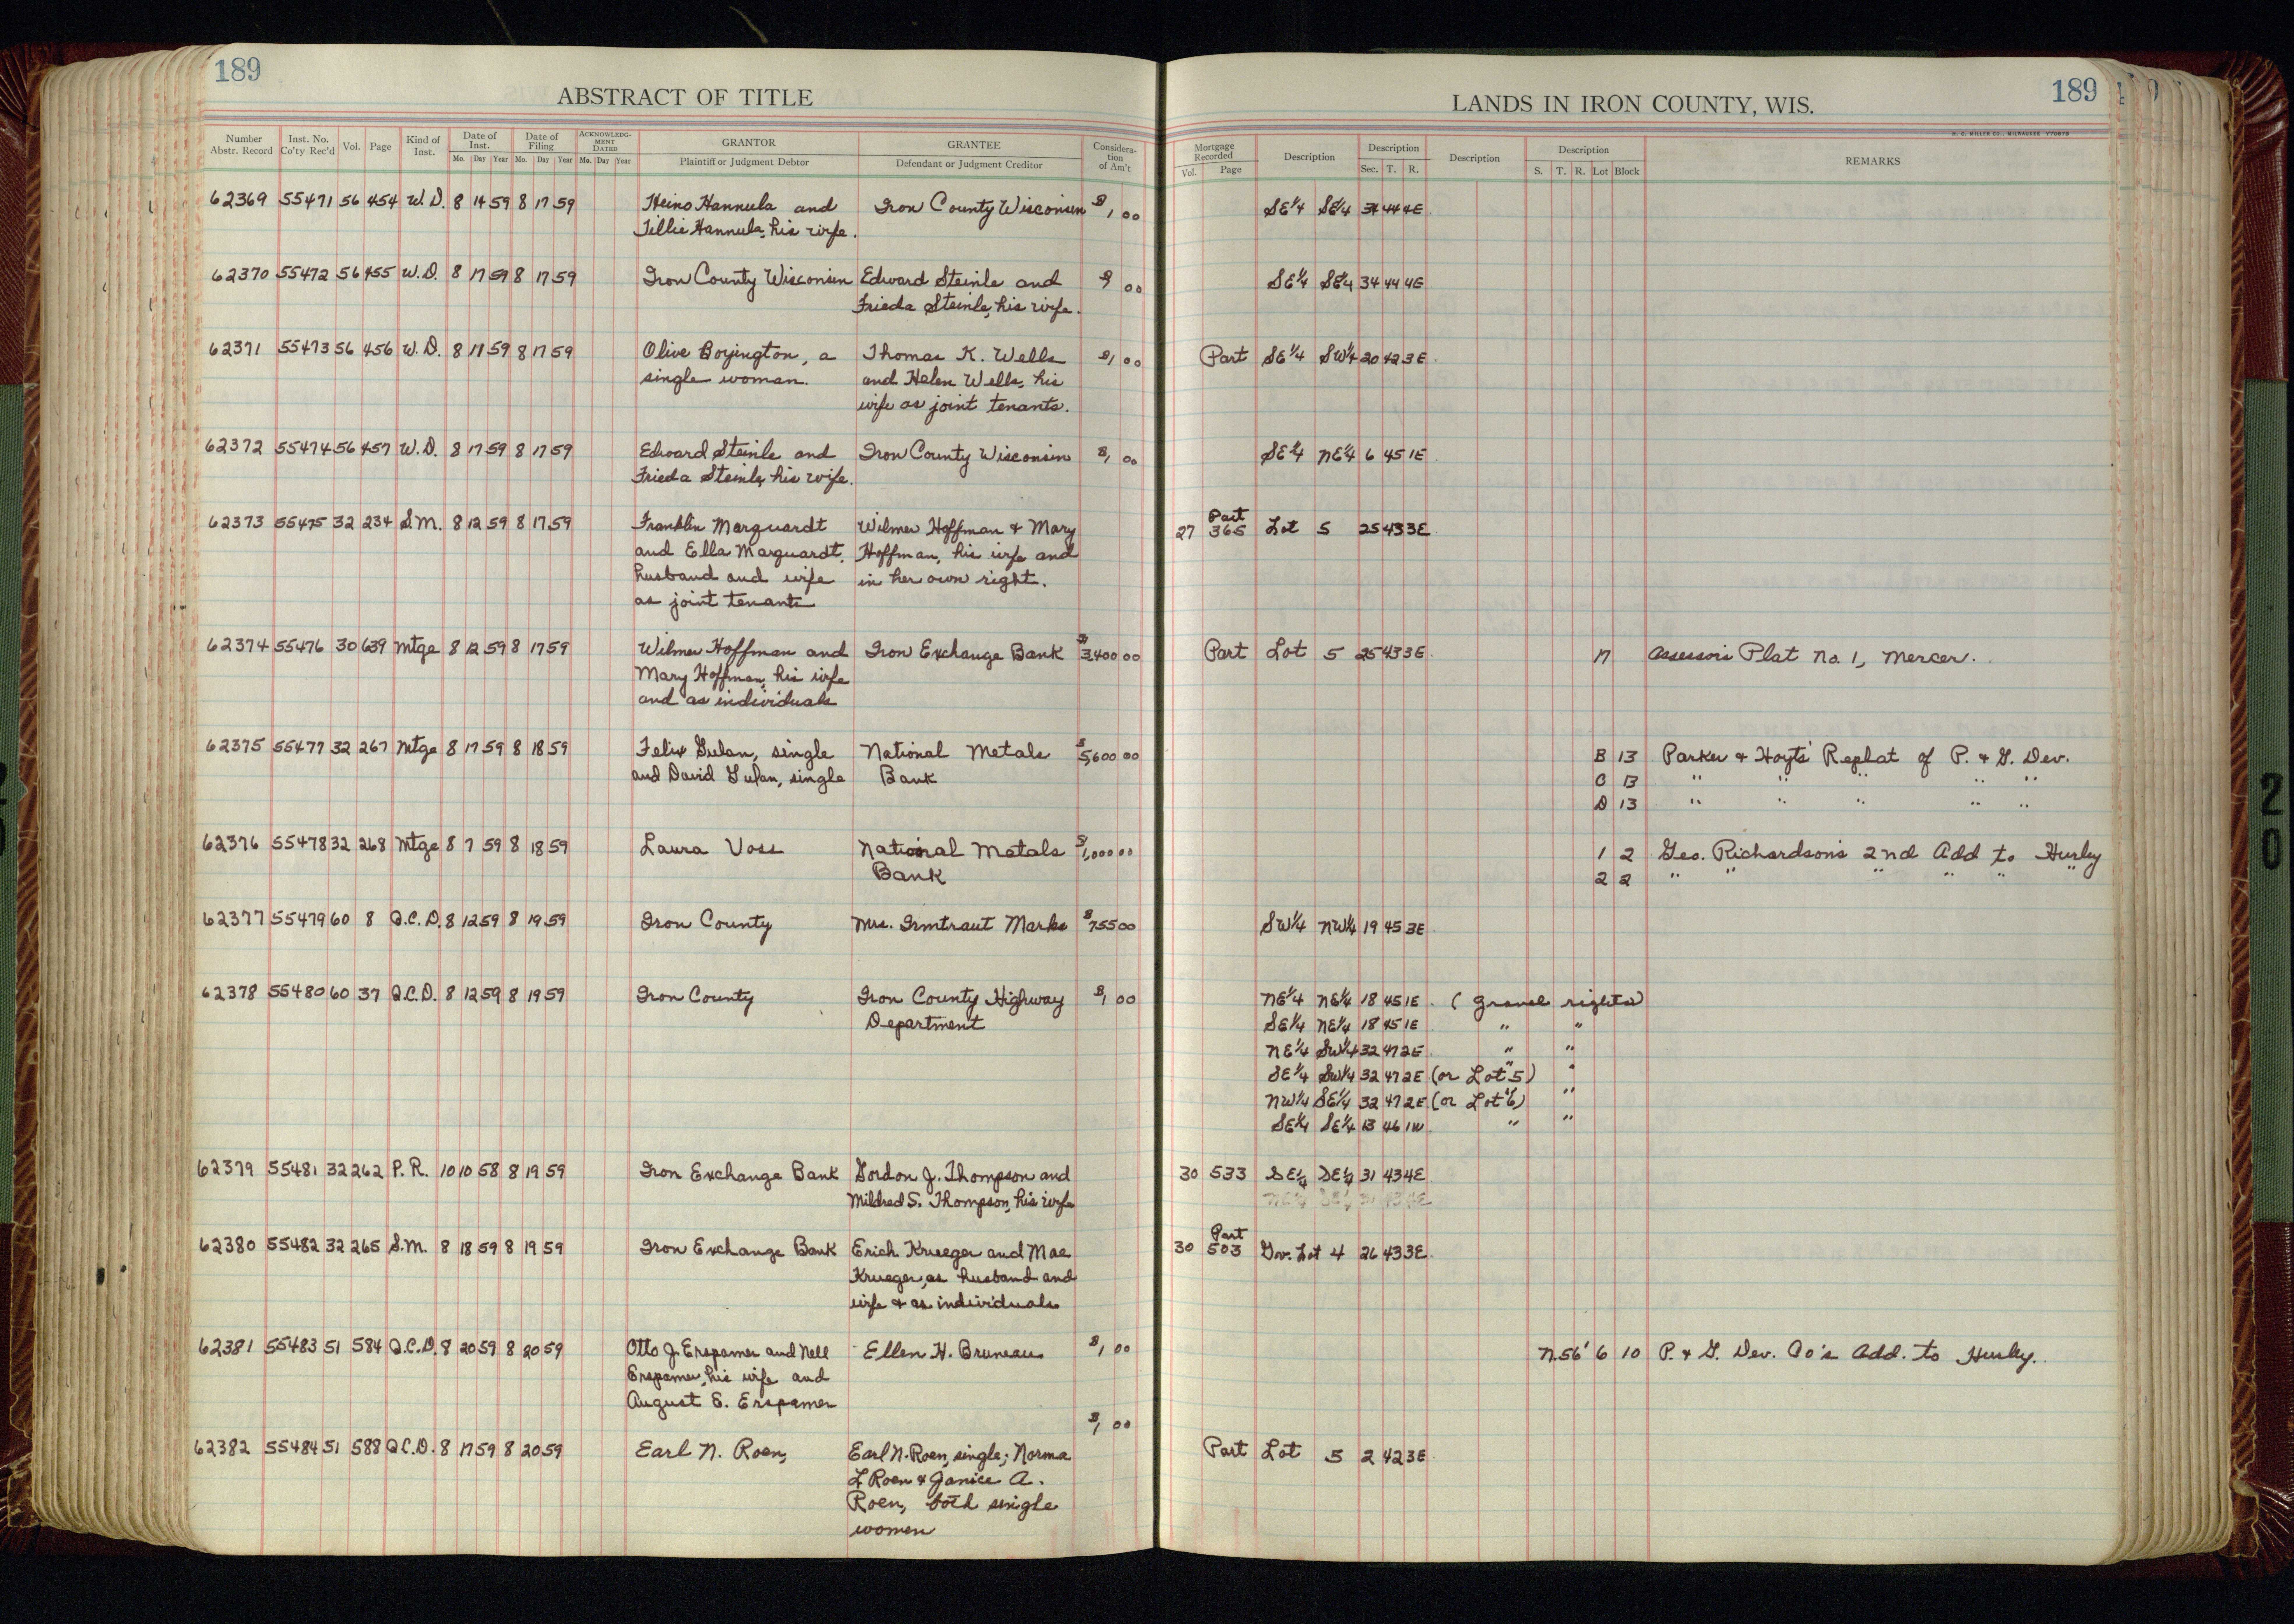 189
189
ABSTRACT OF TITLE
LANDS IN IRON COUNTY, WIS.
H. C. MILLER CO., MILWAUKEE
Number Abstr. Record Inst. No. Co'ty Rec'd Vol. Page Kind of Inst. Date of Inst. Mo. Day Year Date of Filing Mo. Day Year ACKNOWLEDGMENT DATED Mo. Day Year GRANTOR Plaintiff or Judgment Debtor GRANTEE Defendant or Judgment Creditor Consideration of Am't
Mortgage Recorded Vol. Page Description Description Sec. T. R. Description Description S. T. R. Lot Block REMARKS
62369 55471 56 454 W.D. 8 14 59 8 17 59 Heino Hannula and Iron County Wisconsin $1 00 SE¼ SE¼ 34 44 4E
Tillie Hannula, his wife.
62370 55472 56 455 W.D. 8 17 59 8 17 59 Iron County Wisconsin Edward Steinle and 00 SE¼ SE¼ 34 44 4E
Frieda Steinle, his wife.
62371 55473 56 456 W.D. 8 17 59 8 17 59 Olive Boyington, a Thomas K. Wells $1 00 Part SE¼ SW¼ 20 42 3E
single woman. and Helen Wells, his
wife as joint tenants.
62372 55474 56 457 W.D. 8 17 59 8 17 59 Edward Steinle and Iron County Wisconsin $1 00 SE¼ NE¼ 6 45 1E
Frieda Steinle, his wife.
62373 55475 32 234 S.M. 8 12 59 8 17 59 Franklin Marquardt Wilmer Hoffman & Mary 27 Part 365 Lot 5 25 43 3E
and Ella Marquardt, Hoffman, his wife and
husband and wife in her own right.
as joint tenants
62374 55476 30 639 Mtge 8 12 59 8 17 59 Wilmer Hoffman and Iron Exchange Bank $3,400 00 Part Lot 5 25 43 3E n Assessor's Plat No. 1, Mercer.
Mary Hoffman, his wife
and as individuals
62375 55477 32 267 Mtge 8 17 59 8 18 59 Felix Gulan, single National Metals $5,600 00 B 13 Parker & Hoyts' Replat of P. & G. Dev.
and David Gulan, single Bank C 13 " " " " "
D 13 " " " " "
62376 55478 32 268 Mtge 8 7 59 8 18 59 Laura Voss National Metals $1,000 00 1 2 Geo. Richardson's 2nd Add to Hurley
Bank 2 2 " " " " " "
62377 55479 60 8 Q.C.D. 8 12 59 8 19 59 Iron County Mrs. Irmtraut Marks $755 00 SW¼ NW¼ 19 45 3E
62378 55480 60 37 Q.C.D. 8 12 59 8 19 59 Iron County Iron County Highway $1 00 NE¼ NE¼ 18 45 1E (gravel rights)
Department SE¼ NE¼ 18 45 1E " "
NE¼ SW¼ 32 47 2E " "
SE¼ SW¼ 32 47 2E (or Lot 5) " "
NW¼ SE¼ 32 47 2E (or Lot 6) " "
SE¼ SE¼ 13 46 1W " "
62379 55481 32 262 P.R. 10 10 58 8 19 59 Iron Exchange Bank Gordon J. Thompson and 30 533 SE¼ SE¼ 31 43 4E
Mildred S. Thompson, his wife NE¼ SE¼ 31 43 4E
62380 55482 32 265 S.M. 8 18 59 8 19 59 Iron Exchange Bank Erich Krueger and Mae 30 Part 503 Gov. Lot 4 26 43 3E
Krueger, as husband and
wife & as individuals
62381 55483 51 584 Q.C.D. 8 20 59 8 20 59 Otto J. Erspamer and Nell Ellen H. Bruneau $1 00 N.56' 6 10 P. & G. Dev. Co's Add. to Hurley.
Erspamer, his wife and
August E. Erspamer
$1 00
62382 55484 51 588 Q.C.D. 8 17 59 8 20 59 Earl N. Roen, Earl N. Roen, single; Norma Part Lot 5 2 42 3E
L Roen & Janice A.
Roen, both single
women
20